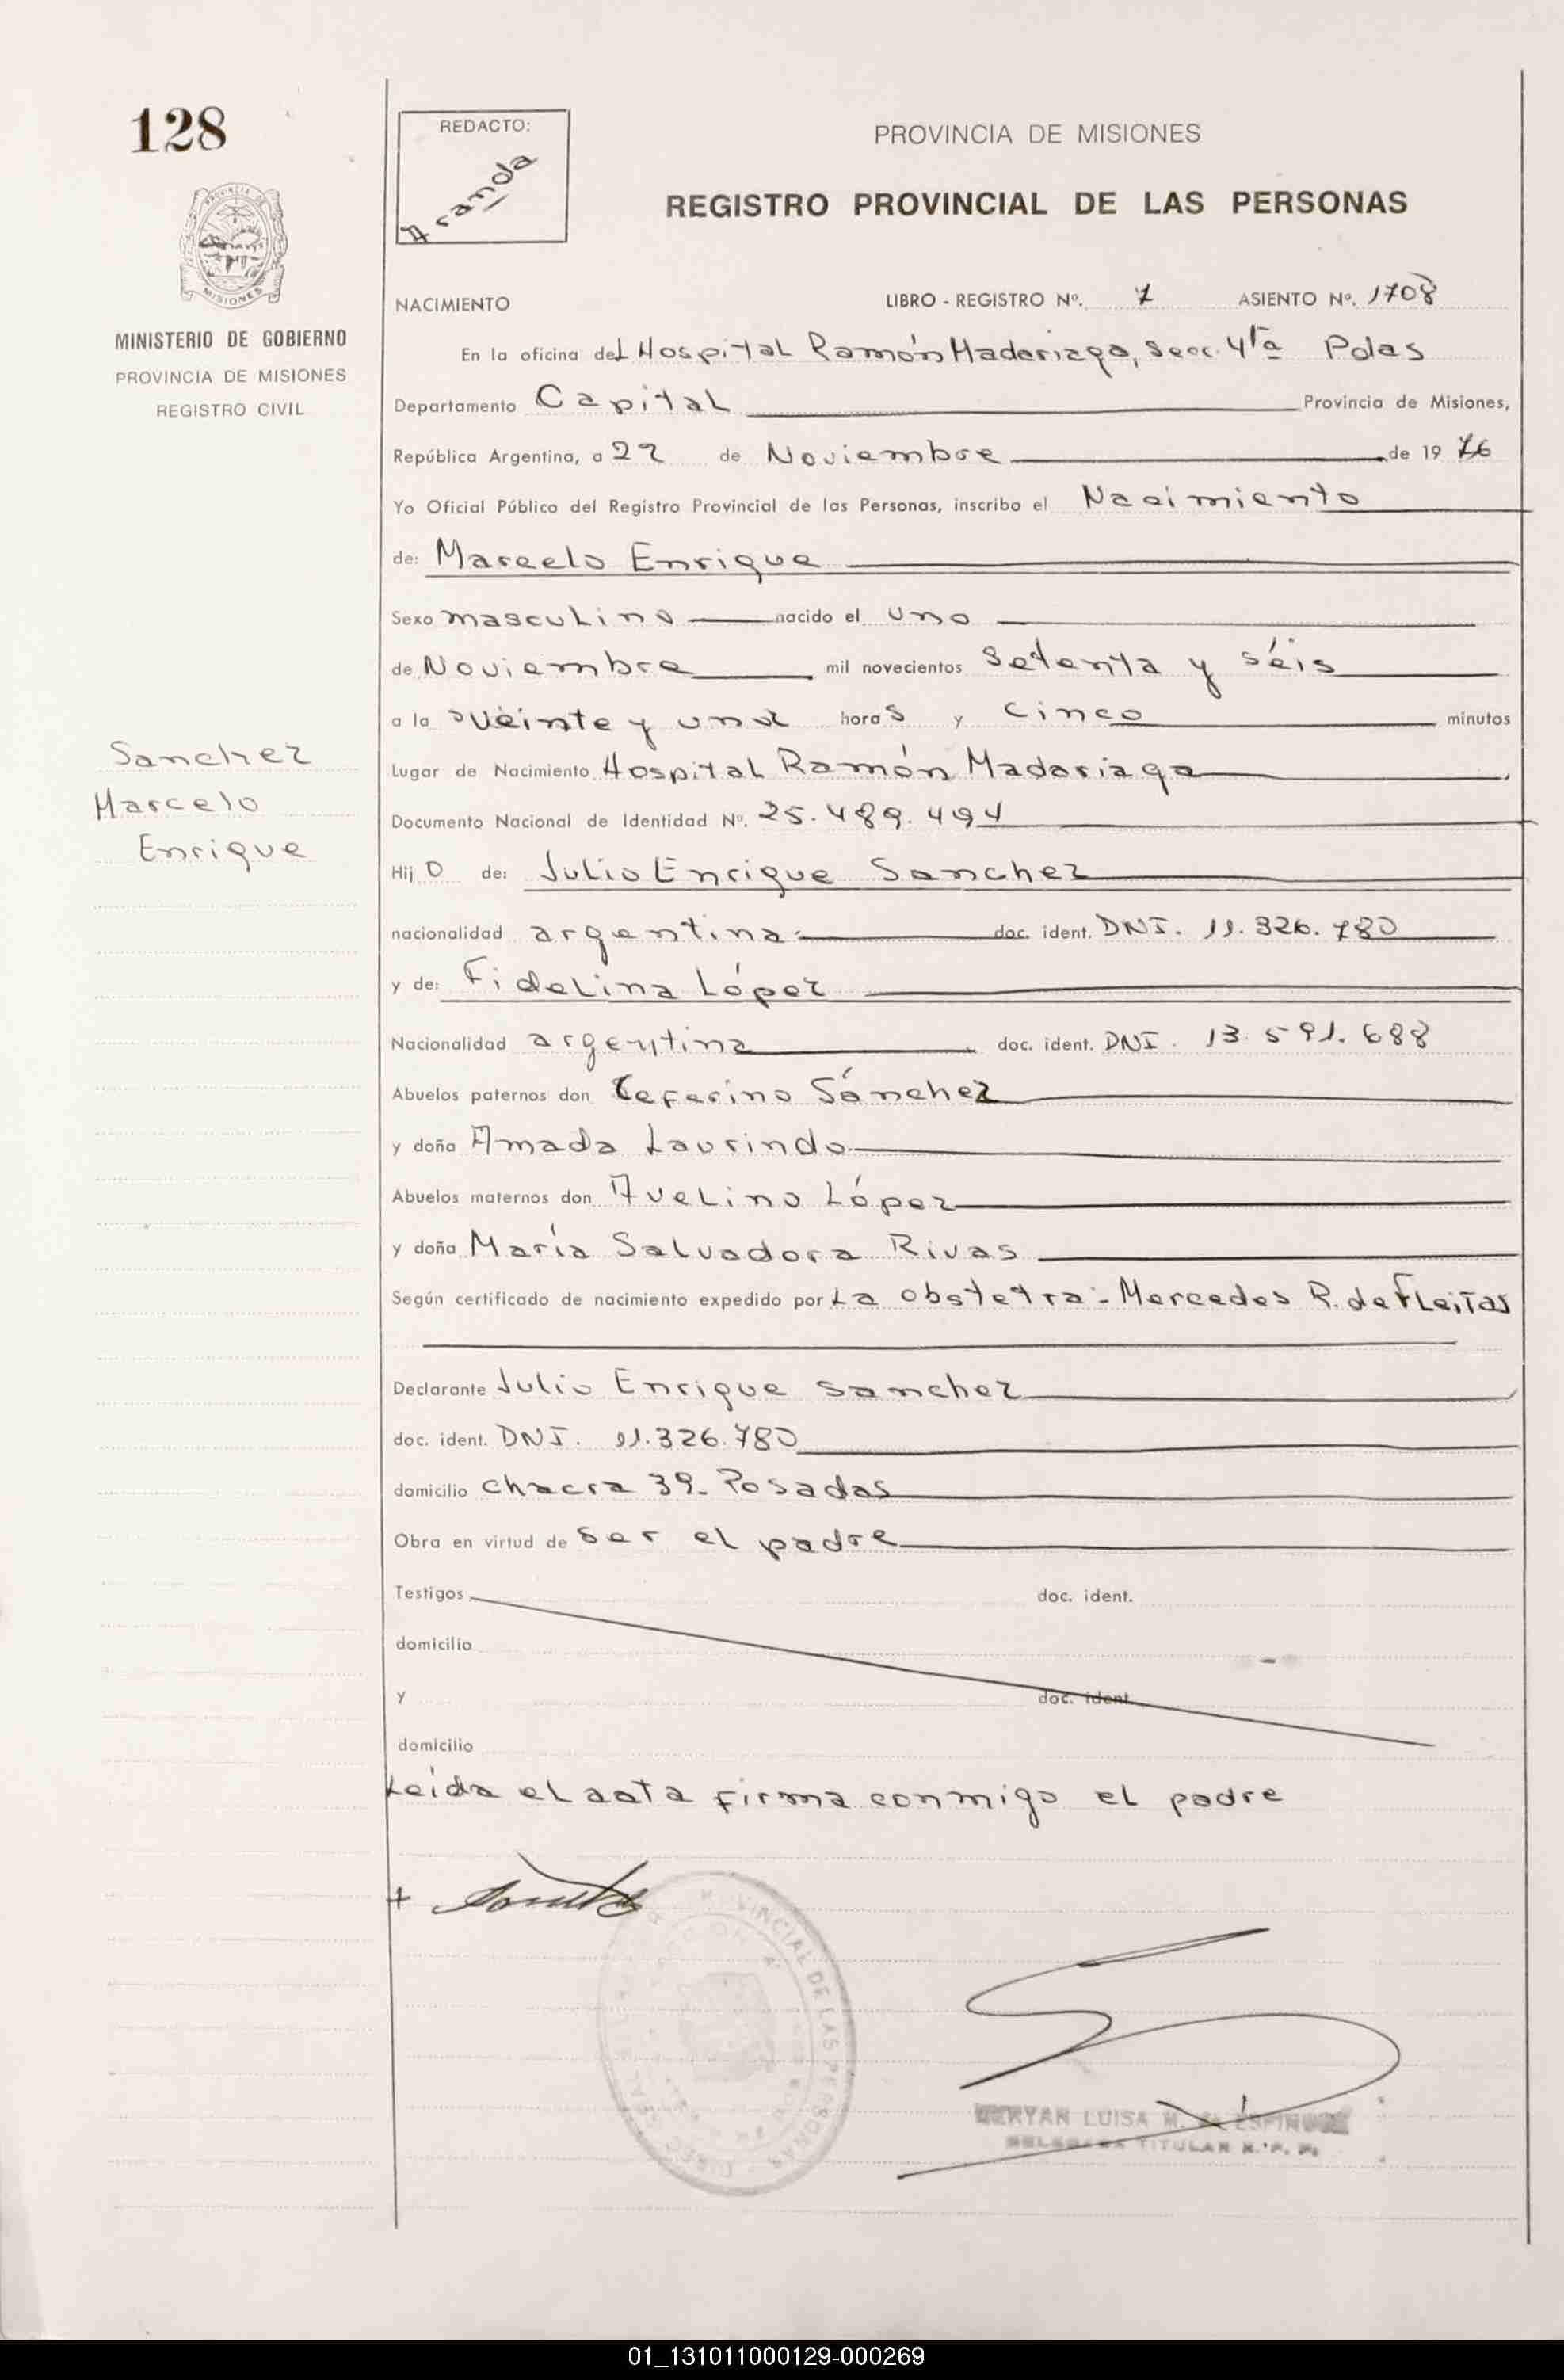 128
REDACTO:
Aranda
PROVINCIA DE MISIONES
REGISTRO PROVINCIAL DE LAS PERSONAS
MISIONES
MINISTERIO DE GOBIERNO
PROVINCIA DE MISIONES
REGISTRO CIVIL
NACIMIENTO LIBRO - REGISTRO Nº. 7 ASIENTO Nº. 1708
En la oficina del Hospital Ramón Madariaga, Secc. 4ta Pdas
Departamento Capital Provincia de Misiones,
República Argentina, a 22 de Noviembre de 1976
Yo Oficial Público del Registro Provincial de las Personas, inscribo el Nacimiento
de: Marcelo Enrique
Sexo masculino nacido el uno
de Noviembre mil novecientos Setenta y séis
a la s veinte y una horas y cinco minutos
Sanchez
Marcelo
Enrique
Lugar de Nacimiento Hospital Ramón Madariaga
Documento Nacional de Identidad Nº. 25.489.494
Hijo de: Julio Enrique Sanchez
nacionalidad argentina doc. ident. DNI. 11.326.780
y de: Fidelina López
Nacionalidad argentina doc. ident. DNI. 13.591.688
Abuelos paternos don Ceferino Sánchez
y doña Amada Laurindo
Abuelos maternos don Avelino López
y doña María Salvadora Rivas
Según certificado de nacimiento expedido por La obstetra - Mercedes R. de Fleitas
Declarante Julio Enrique Sanchez
doc. ident. DNI. 11.326.780
domicilio chacra 39 - Posadas
Obra en virtud de Ser el padre
Testigos doc. ident.
domicilio
y doc. ident.
domicilio
Leída el acta firma conmigo el padre
VINCIAL DE LAS PERSONAS
LUISA M. DE ESPINOZA
TITULAR R. P. P.
01_131011000129-000269